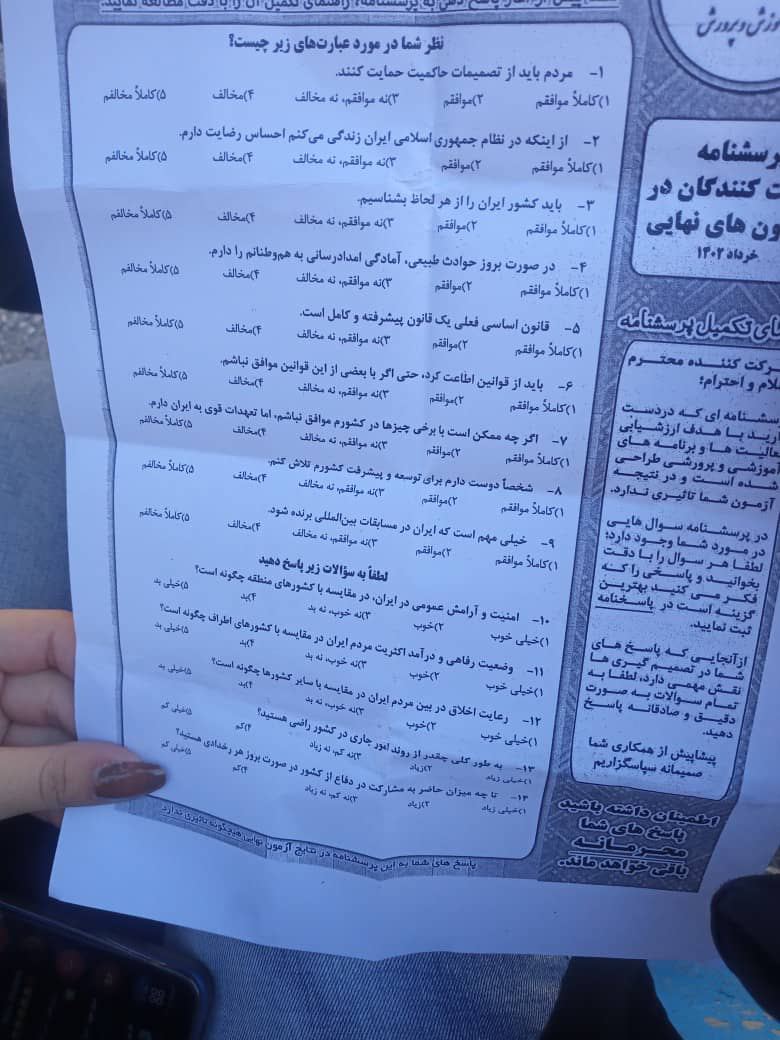 پاسخ دهی به پرسشنامه، راهنمای تکمیل آن را با دقت مطالعه نمایید.
نظر شما در مورد عبارت‌های زیر چیست؟
۱- مردم باید از تصمیمات حاکمیت حمایت کنند.
۱)کاملاً موافقم ۲)موافقم ۳)نه موافقم، نه مخالف ۴)مخالف ۵)کاملاً مخالفم
۲- از اینکه در نظام جمهوری اسلامی ایران زندگی می‌کنم احساس رضایت دارم.
۱)کاملاً موافقم ۲)موافقم ۳)نه موافقم، نه مخالف ۴)مخالف ۵)کاملاً مخالفم
۳- باید کشور ایران را از هر لحاظ بشناسیم.
۱)کاملاً موافقم ۲)موافقم ۳)نه موافقم، نه مخالف ۴)مخالف ۵)کاملاً مخالفم
۴- در صورت بروز حوادث طبیعی، آمادگی امدادرسانی به هم‌وطنانم را دارم.
۱)کاملاً موافقم ۲)موافقم ۳)نه موافقم، نه مخالف ۴)مخالف ۵)کاملاً مخالفم
۵- قانون اساسی فعلی یک قانون پیشرفته و کامل است.
۱)کاملاً موافقم ۲)موافقم ۳)نه موافقم، نه مخالف ۴)مخالف ۵)کاملاً مخالفم
۶- باید از قوانین اطاعت کرد، حتی اگر با بعضی از این قوانین موافق نباشم.
۱)کاملاً موافقم ۲)موافقم ۳)نه موافقم، نه مخالف ۴)مخالف ۵)کاملاً مخالفم
۷- اگر چه ممکن است با برخی چیزها در کشورم موافق نباشم، اما تعهدات قوی به ایران دارم.
۱)کاملاً موافقم ۲)موافقم ۳)نه موافقم، نه مخالف ۴)مخالف ۵)کاملاً مخالفم
۸- شخصاً دوست دارم برای توسعه و پیشرفت کشورم تلاش کنم.
۱)کاملاً موافقم ۲)موافقم ۳)نه موافقم، نه مخالف ۴)مخالف ۵)کاملاً مخالفم
۹- خیلی مهم است که ایران در مسابقات بین‌المللی برنده شود.
۱)کاملاً موافقم ۲)موافقم ۳)نه موافقم، نه مخالف ۴)مخالف ۵)کاملاً مخالفم
لطفاً به سؤالات زیر پاسخ دهید
۱۰- امنیت و آرامش عمومی در ایران، در مقایسه با کشورهای منطقه چگونه است؟
۱)خیلی خوب ۲)خوب ۳)نه خوب، نه بد ۴)بد ۵)خیلی بد
۱۱- وضعیت رفاهی و درآمد اکثریت مردم ایران در مقایسه با کشورهای اطراف چگونه است؟
۱)خیلی خوب ۲)خوب ۳)نه خوب، نه بد ۴)بد ۵)خیلی بد
۱۲- رعایت اخلاق در بین مردم ایران در مقایسه با سایر کشورها چگونه است؟
۱)خیلی خوب ۲)خوب ۳)نه خوب، نه بد ۴)بد ۵)خیلی بد
۱۳- به طور کلی چقدر از روند امور جاری در کشور راضی هستید؟
۱)خیلی زیاد ۲)زیاد ۳)نه کم، نه زیاد ۴)کم ۵)خیلی کم
۱۴- تا چه میزان حاضر به مشارکت در دفاع از کشور در صورت بروز هر رخدادی هستید؟
۱)خیلی زیاد ۲)زیاد ۳)نه کم، نه زیاد ۴)کم ۵)خیلی کم
پاسخ های شما به این پرسشنامه در نتایج آزمون نهایی هیچگونه تاثیری ندارد.
وزش و پرورش
پرسشنامه
ت کنندگان در
ون های نهایی
خرداد ۱۴۰۲
ای تکمیل پرسشنامه
رکت کننده محترم
لام و احترام؛
سشنامه ای که دردست
ارید با هدف ارزشیابی
عالیت ها و برنامه های
موزشی و پرورشی طراحی
شده است و در نتیجه
آزمون شما تاثیری ندارد.
در پرسشنامه سوال هایی
در مورد شما وجود دارد؛
لطفا هر سوال را با دقت
بخوانید و پاسخی را که
فکر می کنید بهترین
گزینه است در پاسخنامه
ثبت نمایید.
از آنجایی که پاسخ های
شما در تصمیم گیری ها
نقش مهمی دارد، لطفا به
تمام سوالات به صورت
دقیق و صادقانه پاسخ
دهید.
پیشاپیش از همکاری شما
صمیمانه سپاسگزاریم
اطمینان داشته باشید
پاسخ های شما
محرمانه
باقی خواهد ماند.